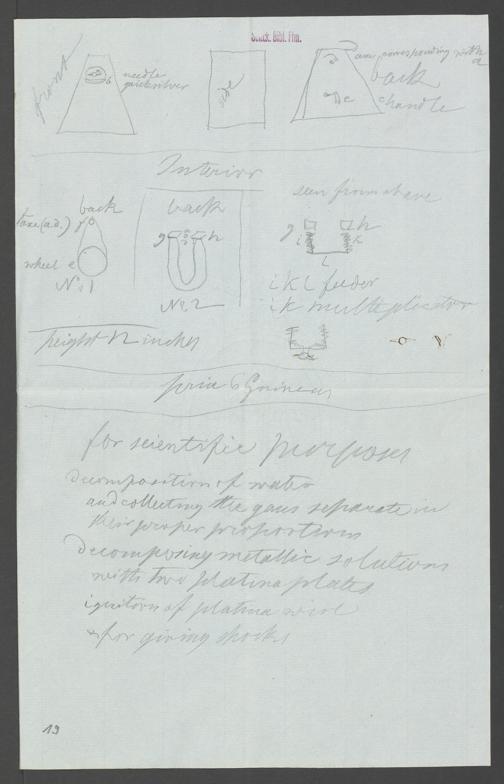 Senck. Bibl. Ffm.
front
needle
quicksilver
b
side
a corresponding with
a
back
c handle
Interior
back
back
seen from above
wheel e
No. 1
g h
No. 2
g h
i k
l
i k l feeder
i k multiplicator
height 12 inches
price 6 Guineas
for scientific purposes
decomposition of water
and collecting the gases separate in
their proper proportions
decomposing metallic solutions
with two platina plates
ignition of platina wire
for giving shocks
19